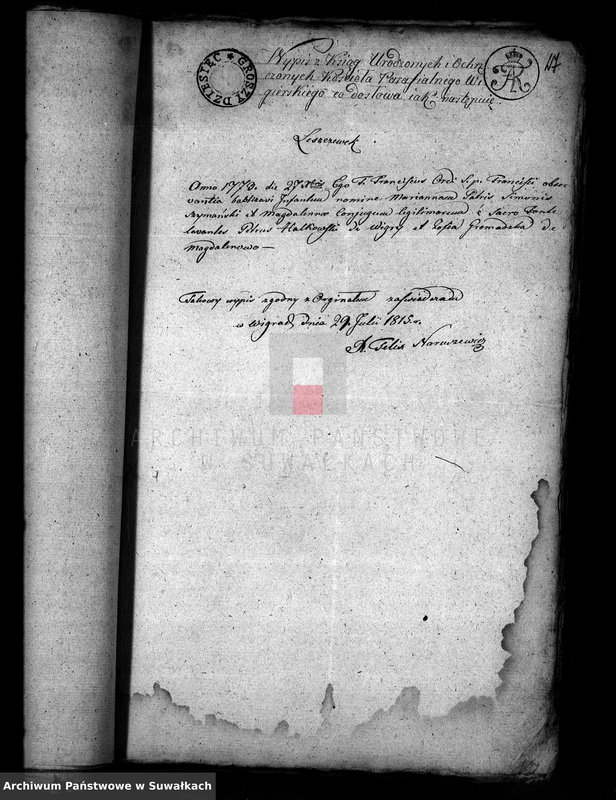 DZIESIĘC * GROSZY
Wypis z Ksiąg Urodzonych i Ochrz
czonych Kościoła Parafialnego Wi
gierskiego co do słowa iak następuie
Leszczewek
Anno 1773. die 27 Ego F. Franciscus Ord: S. P. Francisci obser
vantia babtizavi Infantem nomine Mariannam Patris Simonis
Szymański et Magdalena Conjugum legitimorum e Sacro Fonte
levantes Petrus Małkowski de Wigry et Zofia Gromadzka de
Magdalenowo —
Takowy wypis zgodny z Orginałem zaświadczam
w Wigrach dnia 29 Julii 1815 r.
X. Felix Naruszewicz
ARCHIWUM PAŃSTWOWE
W SUWAŁKACH
Archiwum Państwowe w Suwałkach